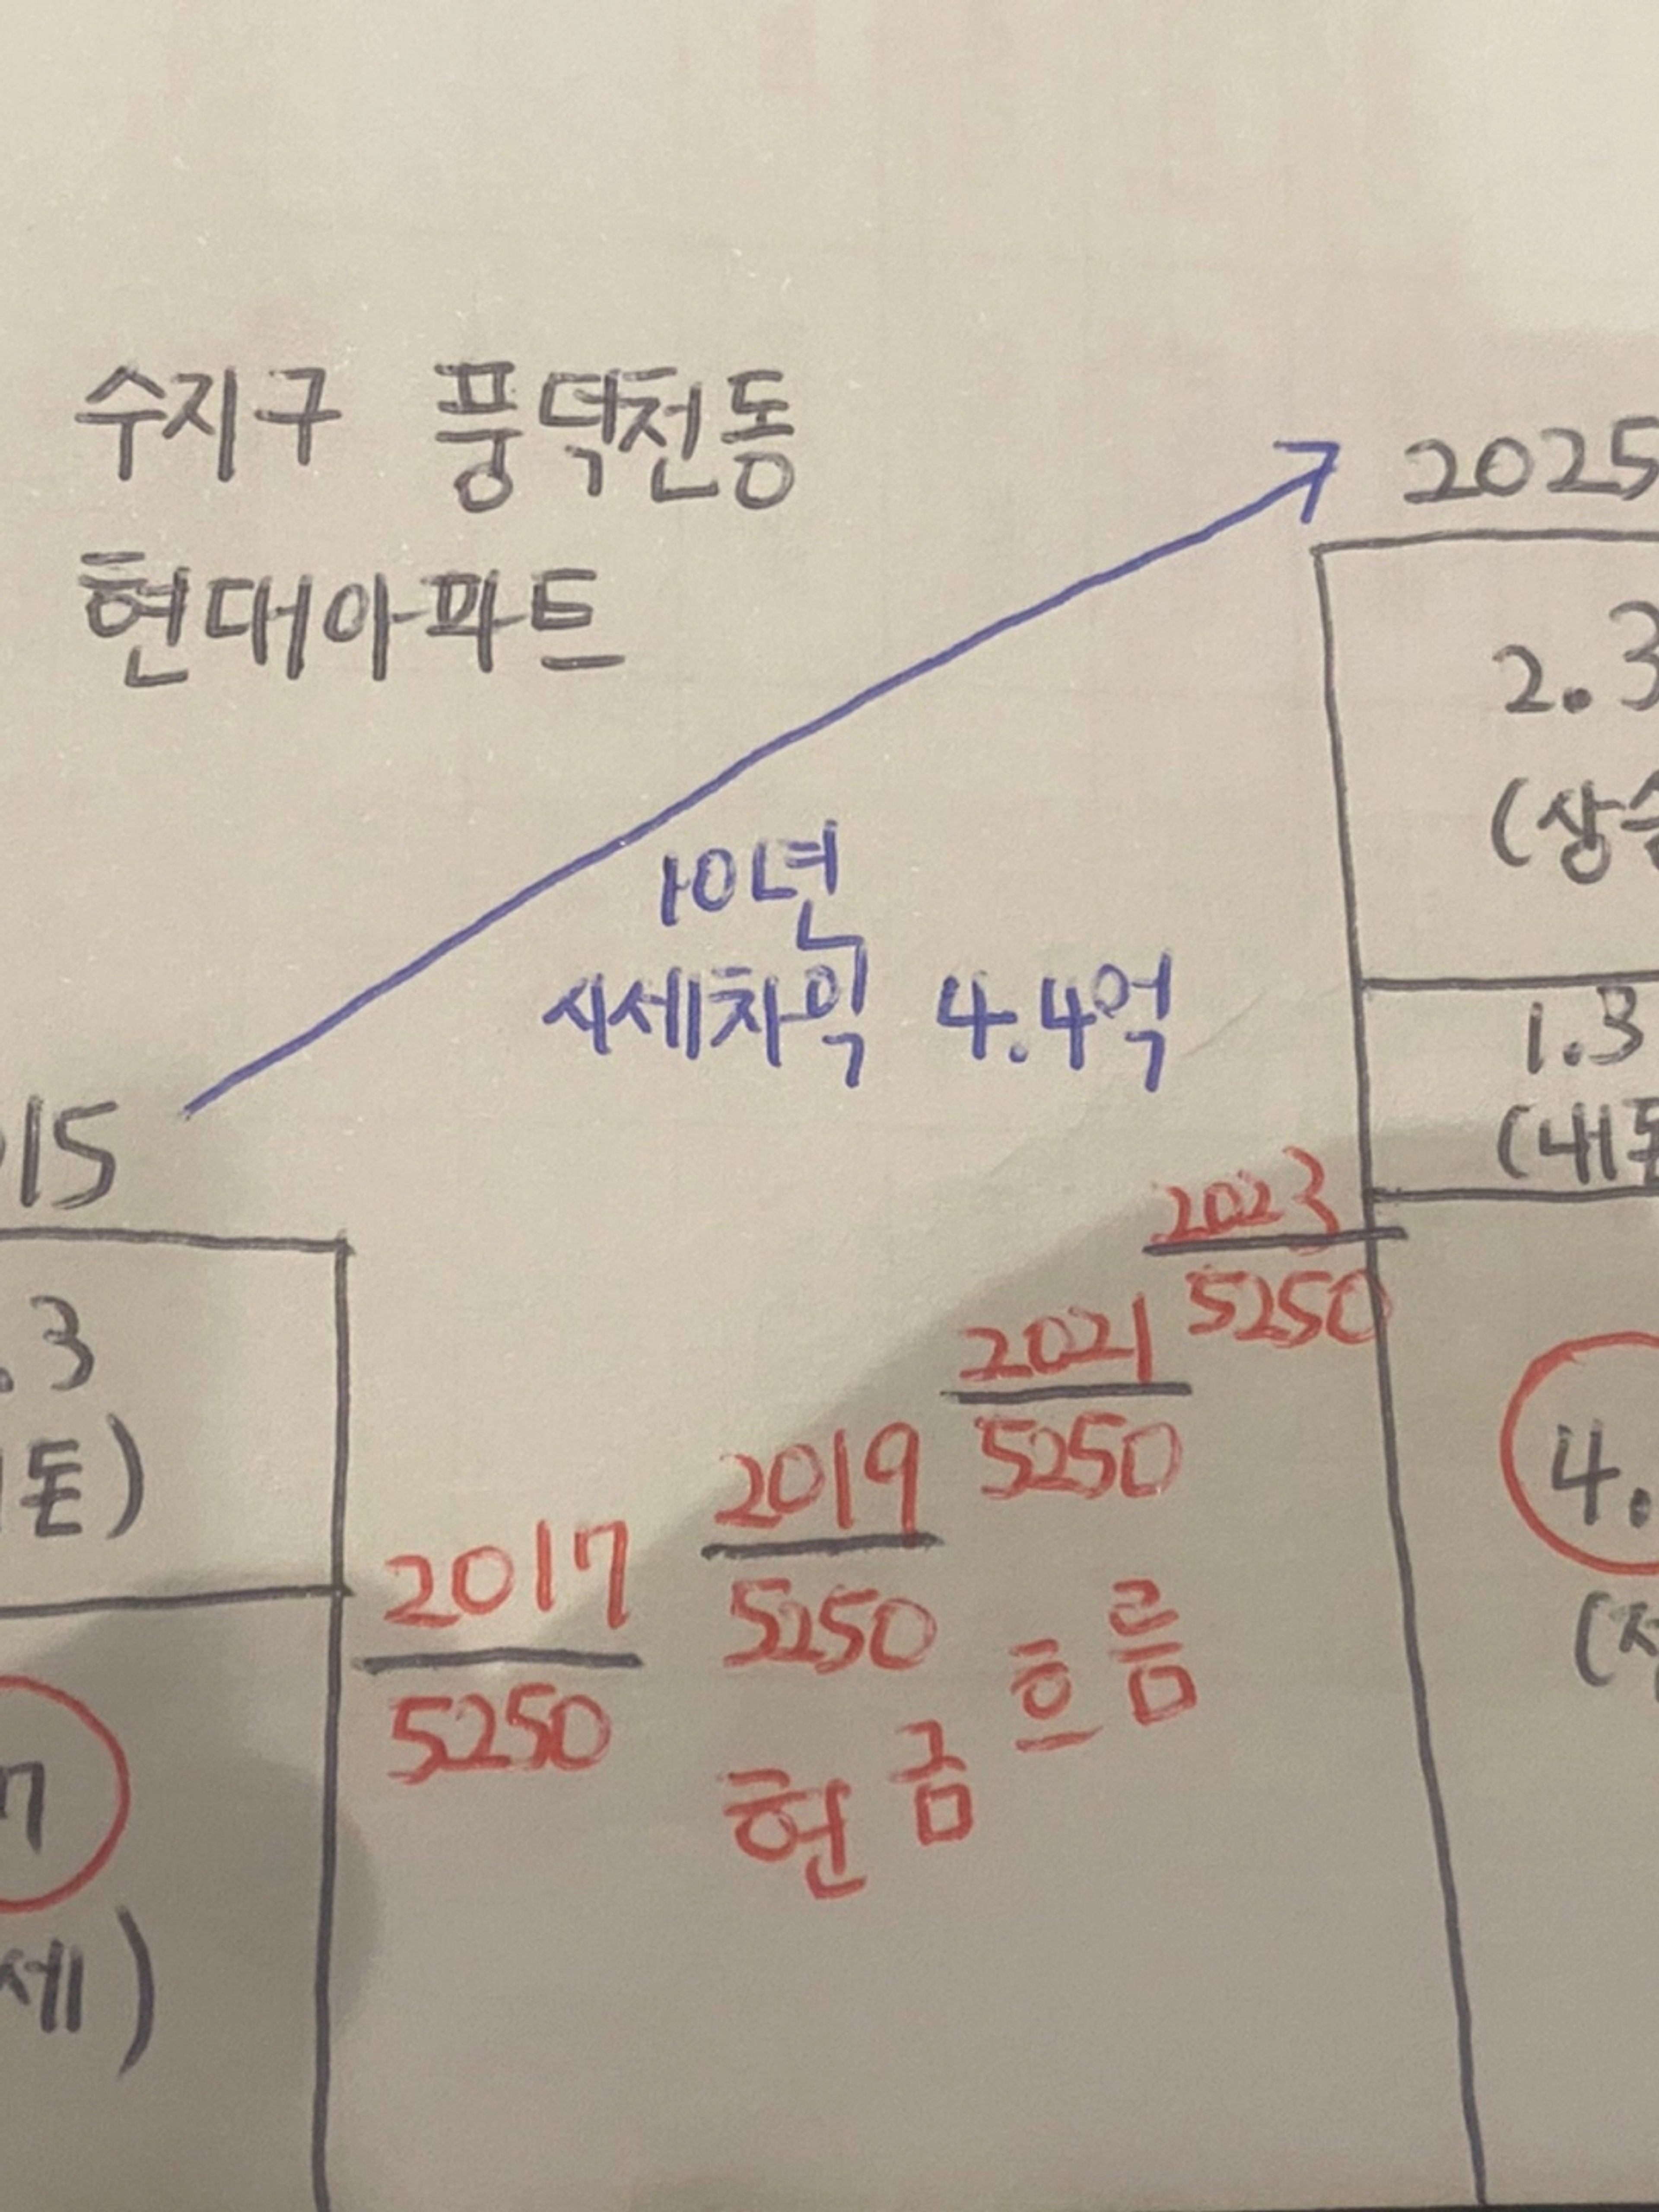 수지구 풍덕천동
현대아파트
2025
2.3
(상승
1.3
(내돈
10년
시세차익 4.4억
15
.3
돈)
7
세)
2017
5250
2019
5250
2021
5250
2023
5250
현금흐름
4.
(전